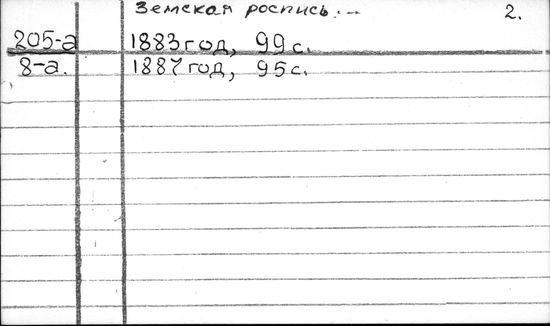 Земская роспись... 2.
205-а 1883 год, 99 с.
8-а. 1887 год, 95 с.